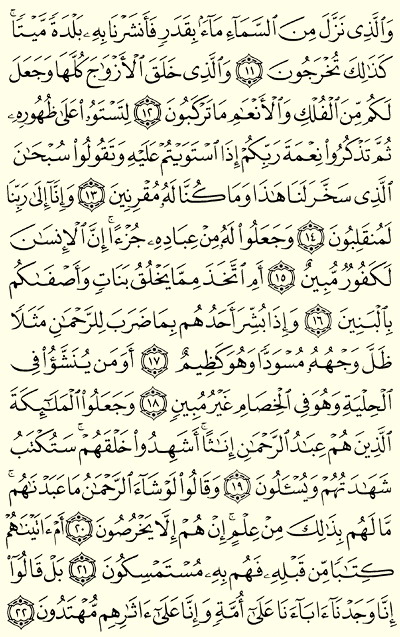 وَالَّذِي نَزَّلَ مِنَ السَّمَاءِ مَاءً بِقَدَرٍ فَأَنشَرْنَا بِهِ بَلْدَةً مَّيْتًا ۚ
كَذَٰلِكَ تُخْرَجُونَ ﴿١١﴾ وَالَّذِي خَلَقَ الْأَزْوَاجَ كُلَّهَا وَجَعَلَ
لَكُم مِّنَ الْفُلْكِ وَالْأَنْعَامِ مَا تَرْكَبُونَ ﴿١٢﴾ لِتَسْتَوُوا عَلَىٰ ظُهُورِهِ
ثُمَّ تَذْكُرُوا نِعْمَةَ رَبِّكُمْ إِذَا اسْتَوَيْتُمْ عَلَيْهِ وَتَقُولُوا سُبْحَانَ
الَّذِي سَخَّرَ لَنَا هَٰذَا وَمَا كُنَّا لَهُ مُقْرِنِينَ ﴿١٣﴾ وَإِنَّا إِلَىٰ رَبِّنَا
لَمُنقَلِبُونَ ﴿١٤﴾ وَجَعَلُوا لَهُ مِنْ عِبَادِهِ جُزْءًا ۚ إِنَّ الْإِنسَانَ
لَكَفُورٌ مُّبِينٌ ﴿١٥﴾ أَمِ اتَّخَذَ مِمَّا يَخْلُقُ بَنَاتٍ وَأَصْفَاكُم
بِالْبَنِينَ ﴿١٦﴾ وَإِذَا بُشِّرَ أَحَدُهُم بِمَا ضَرَبَ لِلرَّحْمَٰنِ مَثَلًا
ظَلَّ وَجْهُهُ مُسْوَدًّا وَهُوَ كَظِيمٌ ﴿١٧﴾ أَوَمَن يُنَشَّأُ فِي
الْحِلْيَةِ وَهُوَ فِي الْخِصَامِ غَيْرُ مُبِينٍ ﴿١٨﴾ وَجَعَلُوا الْمَلَائِكَةَ
الَّذِينَ هُمْ عِبَادُ الرَّحْمَٰنِ إِنَاثًا ۚ أَشَهِدُوا خَلْقَهُمْ ۚ سَتُكْتَبُ
شَهَادَتُهُمْ وَيُسْأَلُونَ ﴿١٩﴾ وَقَالُوا لَوْ شَاءَ الرَّحْمَٰنُ مَا عَبَدْنَاهُم ۗ
مَّا لَهُم بِذَٰلِكَ مِنْ عِلْمٍ ۖ إِنْ هُمْ إِلَّا يَخْرُصُونَ ﴿٢٠﴾ أَمْ آتَيْنَاهُمْ
كِتَابًا مِّن قَبْلِهِ فَهُم بِهِ مُسْتَمْسِكُونَ ﴿٢١﴾ بَلْ قَالُوا
إِنَّا وَجَدْنَا آبَاءَنَا عَلَىٰ أُمَّةٍ وَإِنَّا عَلَىٰ آثَارِهِم مُّهْتَدُونَ ﴿٢٢﴾